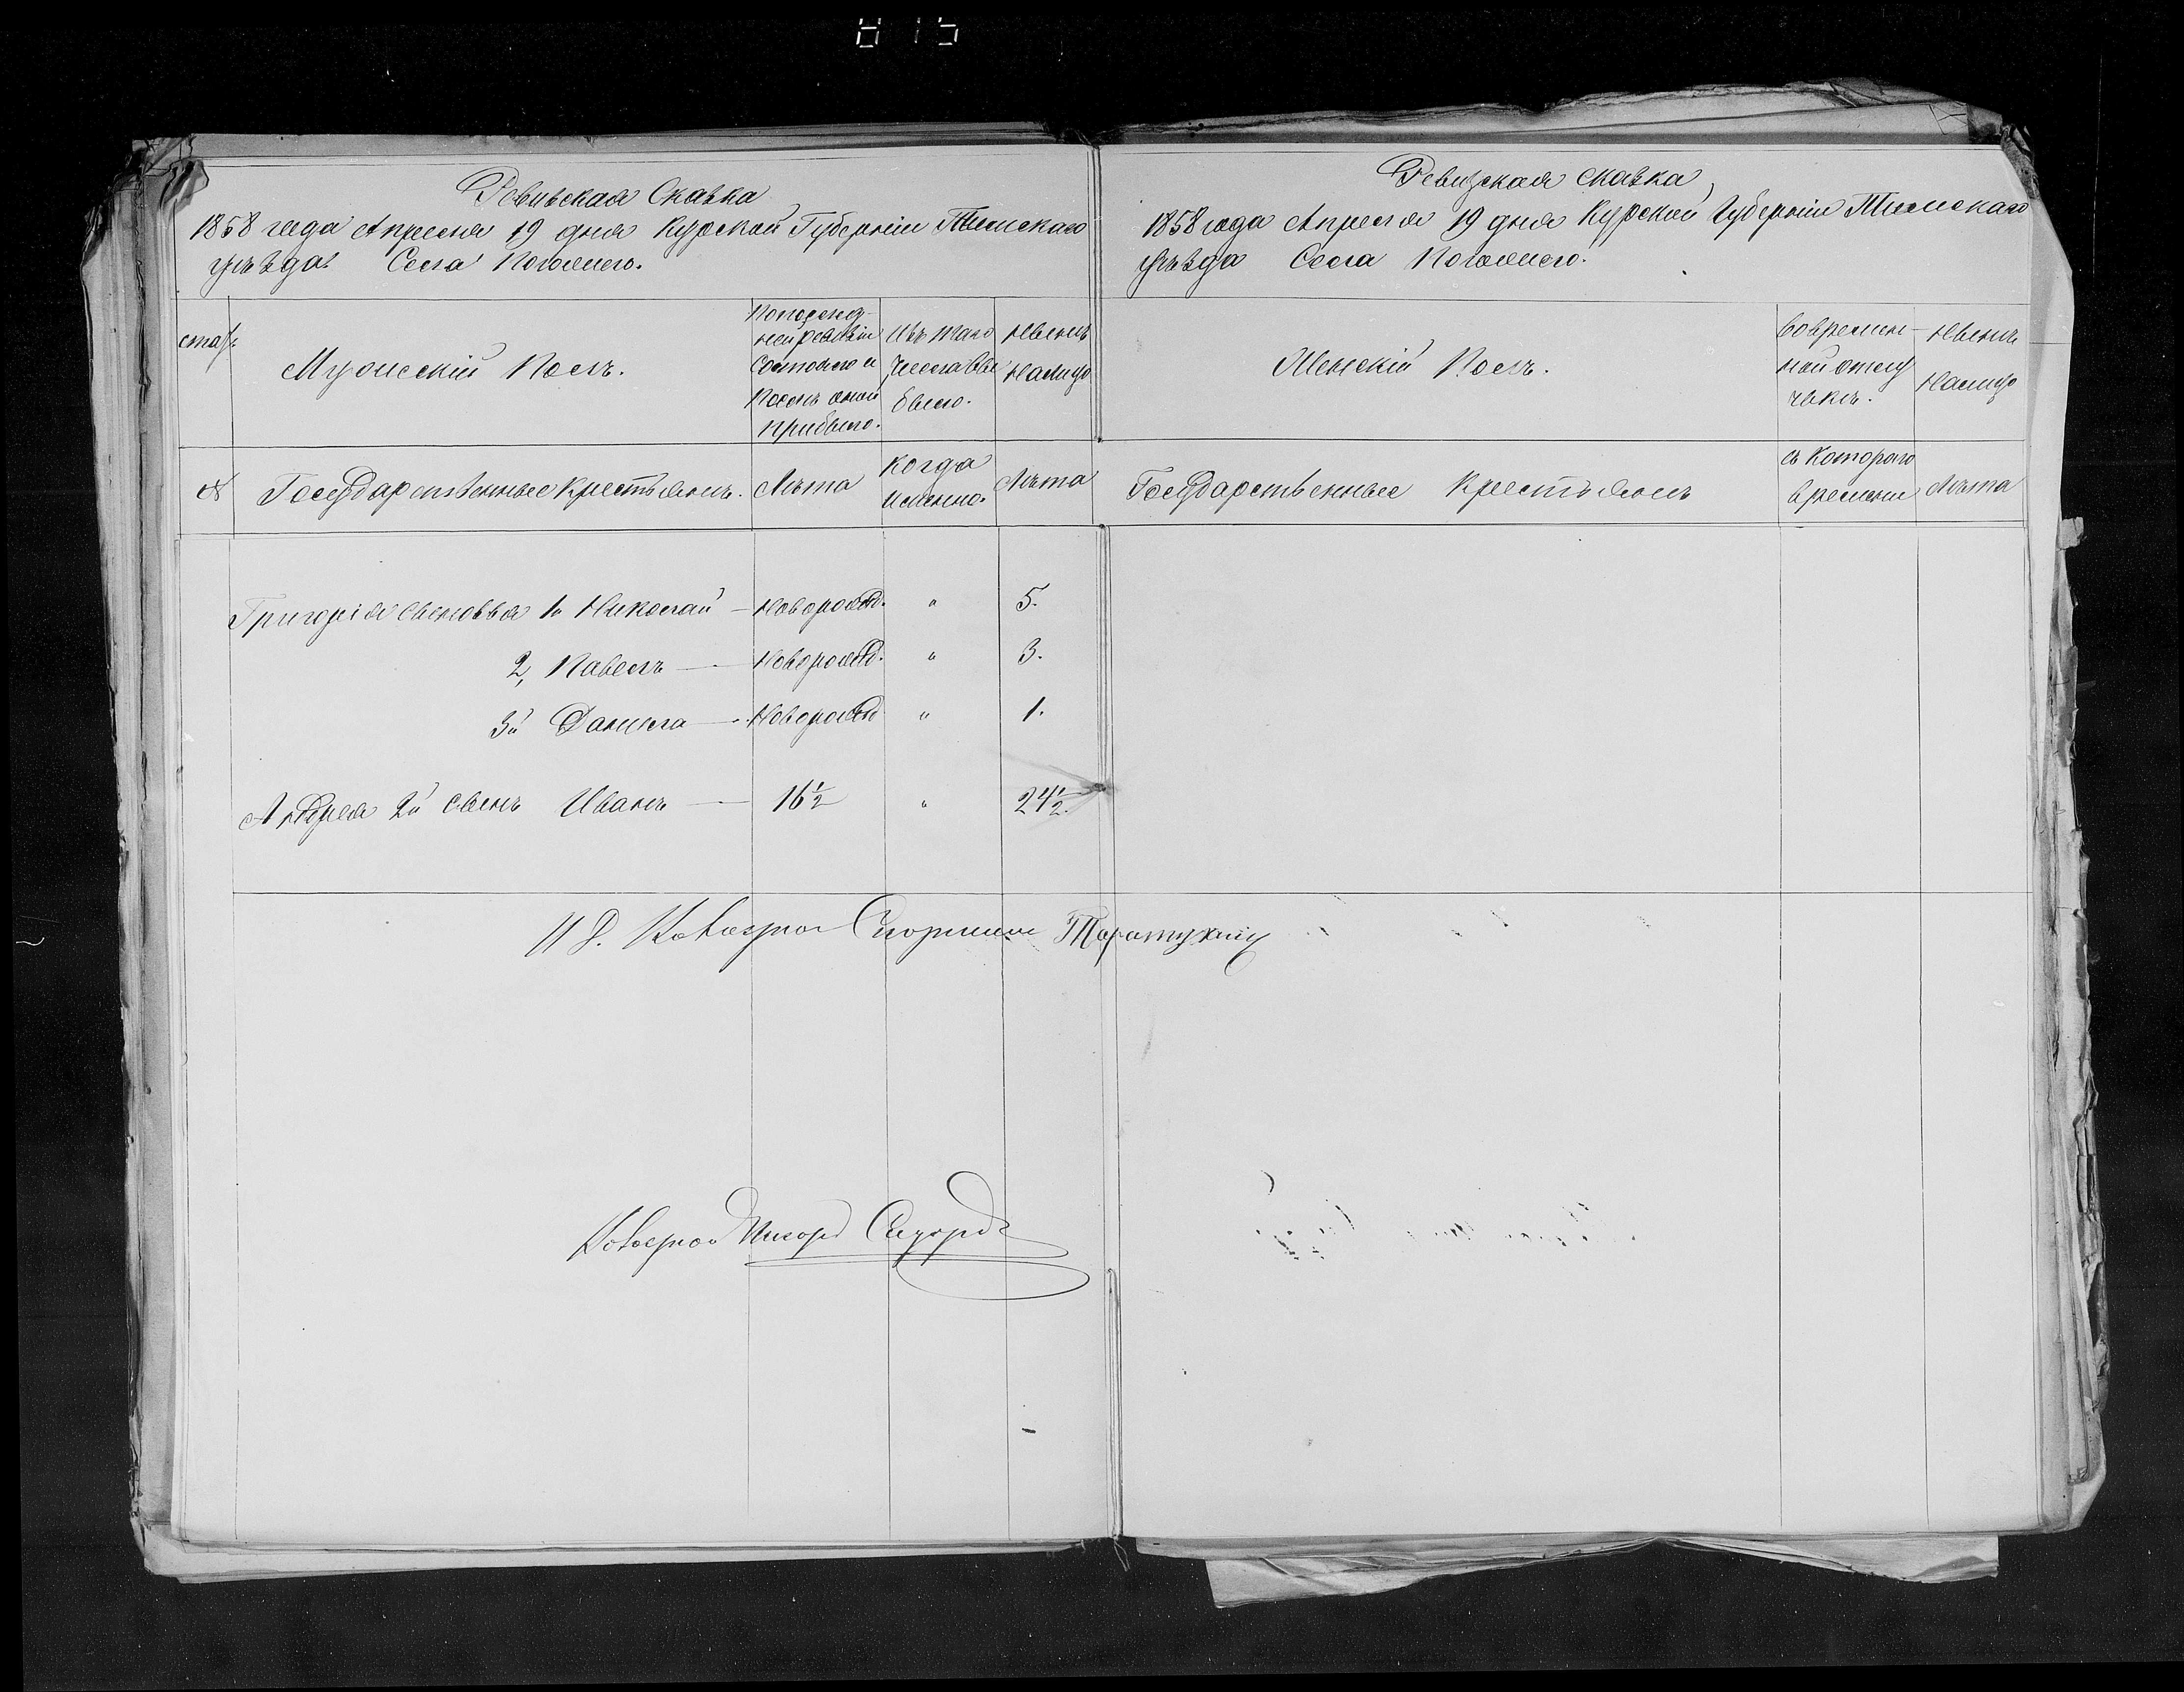 815
Ревизская Сказка
1858 года Апреля 19 дня Курской Губерніи Тимскаго
уѣзда Села Погожего.
Мужескій Полъ.
По послед-
ней ревизіи
Состояло и
После оной
прибыло.
Изъ того
Числа вы
было.
Ныне
Налицо
№ Государственные крестьянъ.
Лѣта
когда
именно.
Лѣта
Григорія сыновья 1й Николай — новорожд. " 5.
2, Павелъ — новорожд. " 3.
3й Данила — новорожд " 1.
Андрея 2й сынъ Иванъ — 16½ " 24½.
И Д.
Ревизская сказка
1858 года Апреля 19 дня Курской Губерніи Тимскаго
уѣзда Села Погожего.
Женскій Полъ.
Во времен-
ной отлу
чкѣ.
Ныне
Налицо
Государственные крестьянъ
съ котораго
времени
Лѣта